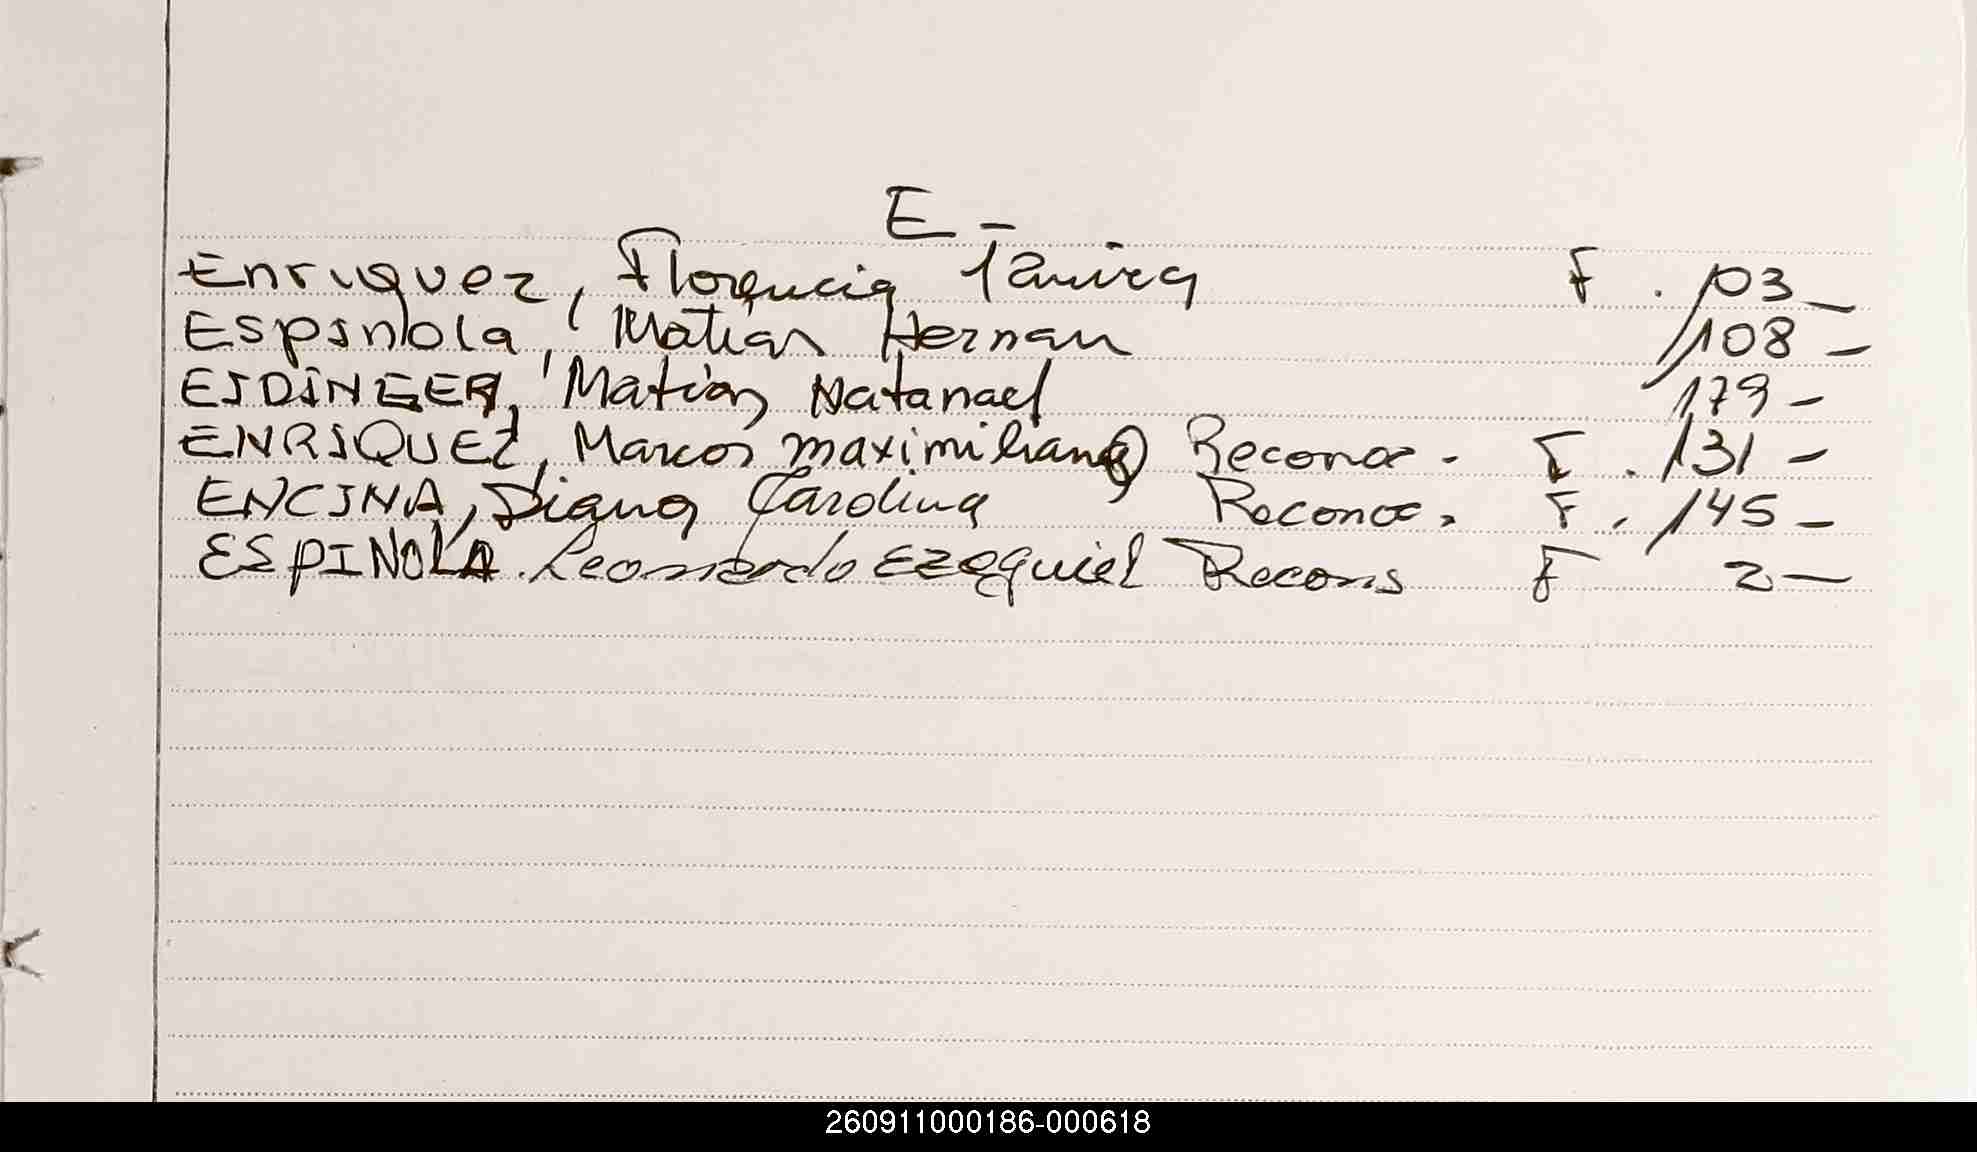 E -
Enriquez, Florencia Tamira F. 103 -
Espinola, Matias Hernan 108 -
EIDINGER, Matias Natanael 179 -
ENRIQUEZ, Marcos maximiliano Reconoc. F. 131 -
ENCINA, Diana Carolina Reconoc. F. 145 -
ESPINOLA. Leonardo Ezequiel Recons F 2 -
260911000186-000618